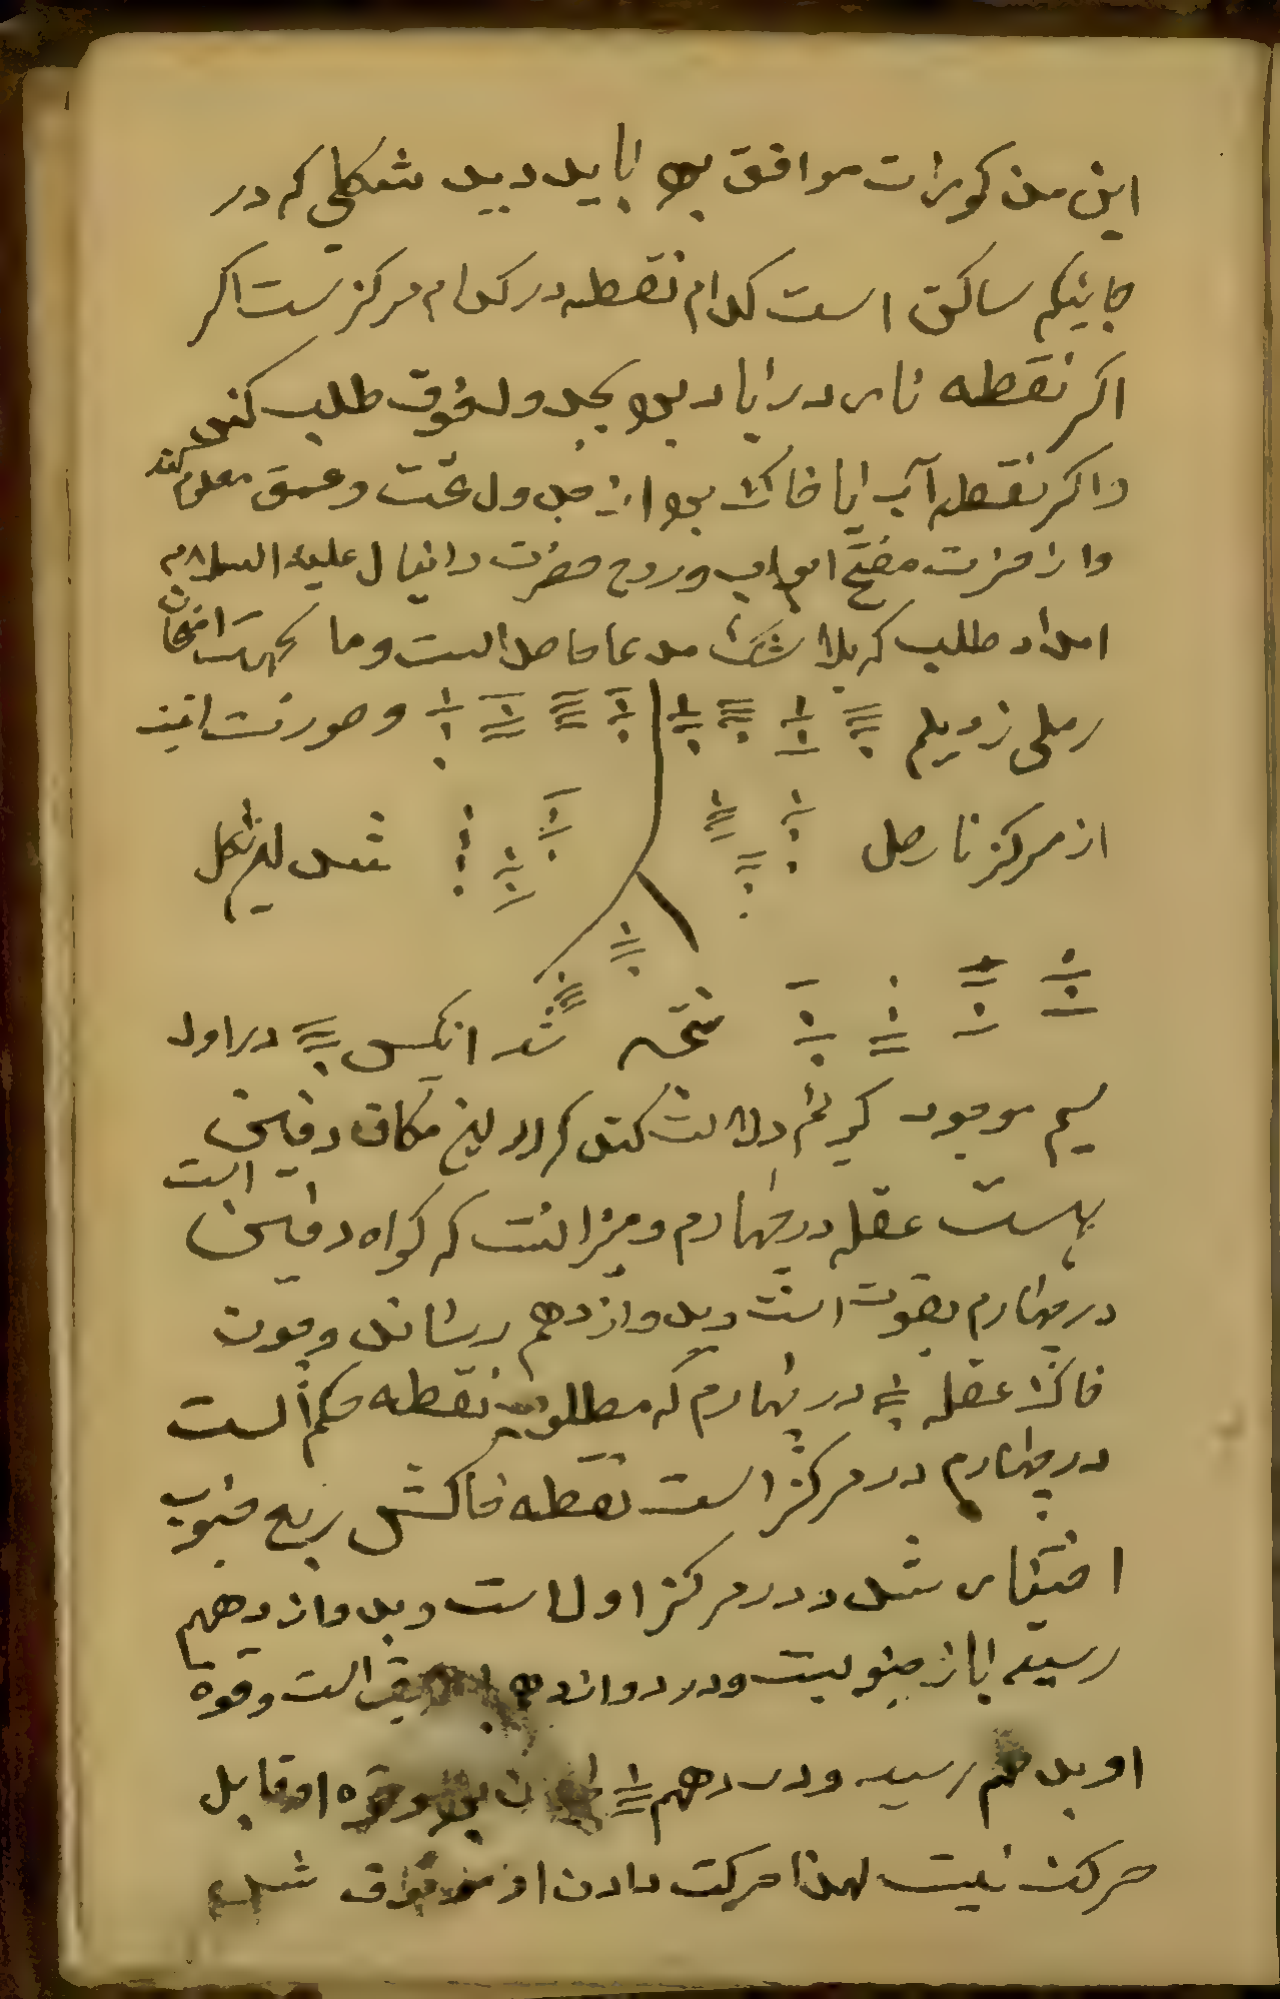 این مذکورات موافق بود اباید دید شکلی که در
جائیکه ساکن است کدام نقطه در کدام مرکز ست اکر
اکر نقطه نار در اباد بود بجدول فوق طلب کند
واکر نقطه آب ایا خاک بود از جدول تحت وعمق معلوم کند
واز حضرت مفتح ابواب وروح حضرت دانیال علیه السلام
امداد طلب که بلا شک مدعا حاصل است وما بجهت امتحان
رملی زدیم و صورت اینست
از مرکز نار صل شد این شکل
نتیجه شد انکیس در اول
کرد دلالت کند که در این مکان دفینه
هست عقله در چهارم ومیزانست که کواه دفینه است
در چهارم بقوت است وبدوازدهم رساند وقوت
خاک عقله در چهارم که مطلوب نقطه حکم است
در چهارم در مرکز است نقطه خاکش ربع جنوب
اختیار شد ودر مرکز اول است وبدوازدهم
رسید اباز جنوبیت ودر دوازدهم است وقوة
او بدهم رسید ودر دهم بود وقوة او قابل
حرکت نیست لهذا حرکت دادن از موقوف شد